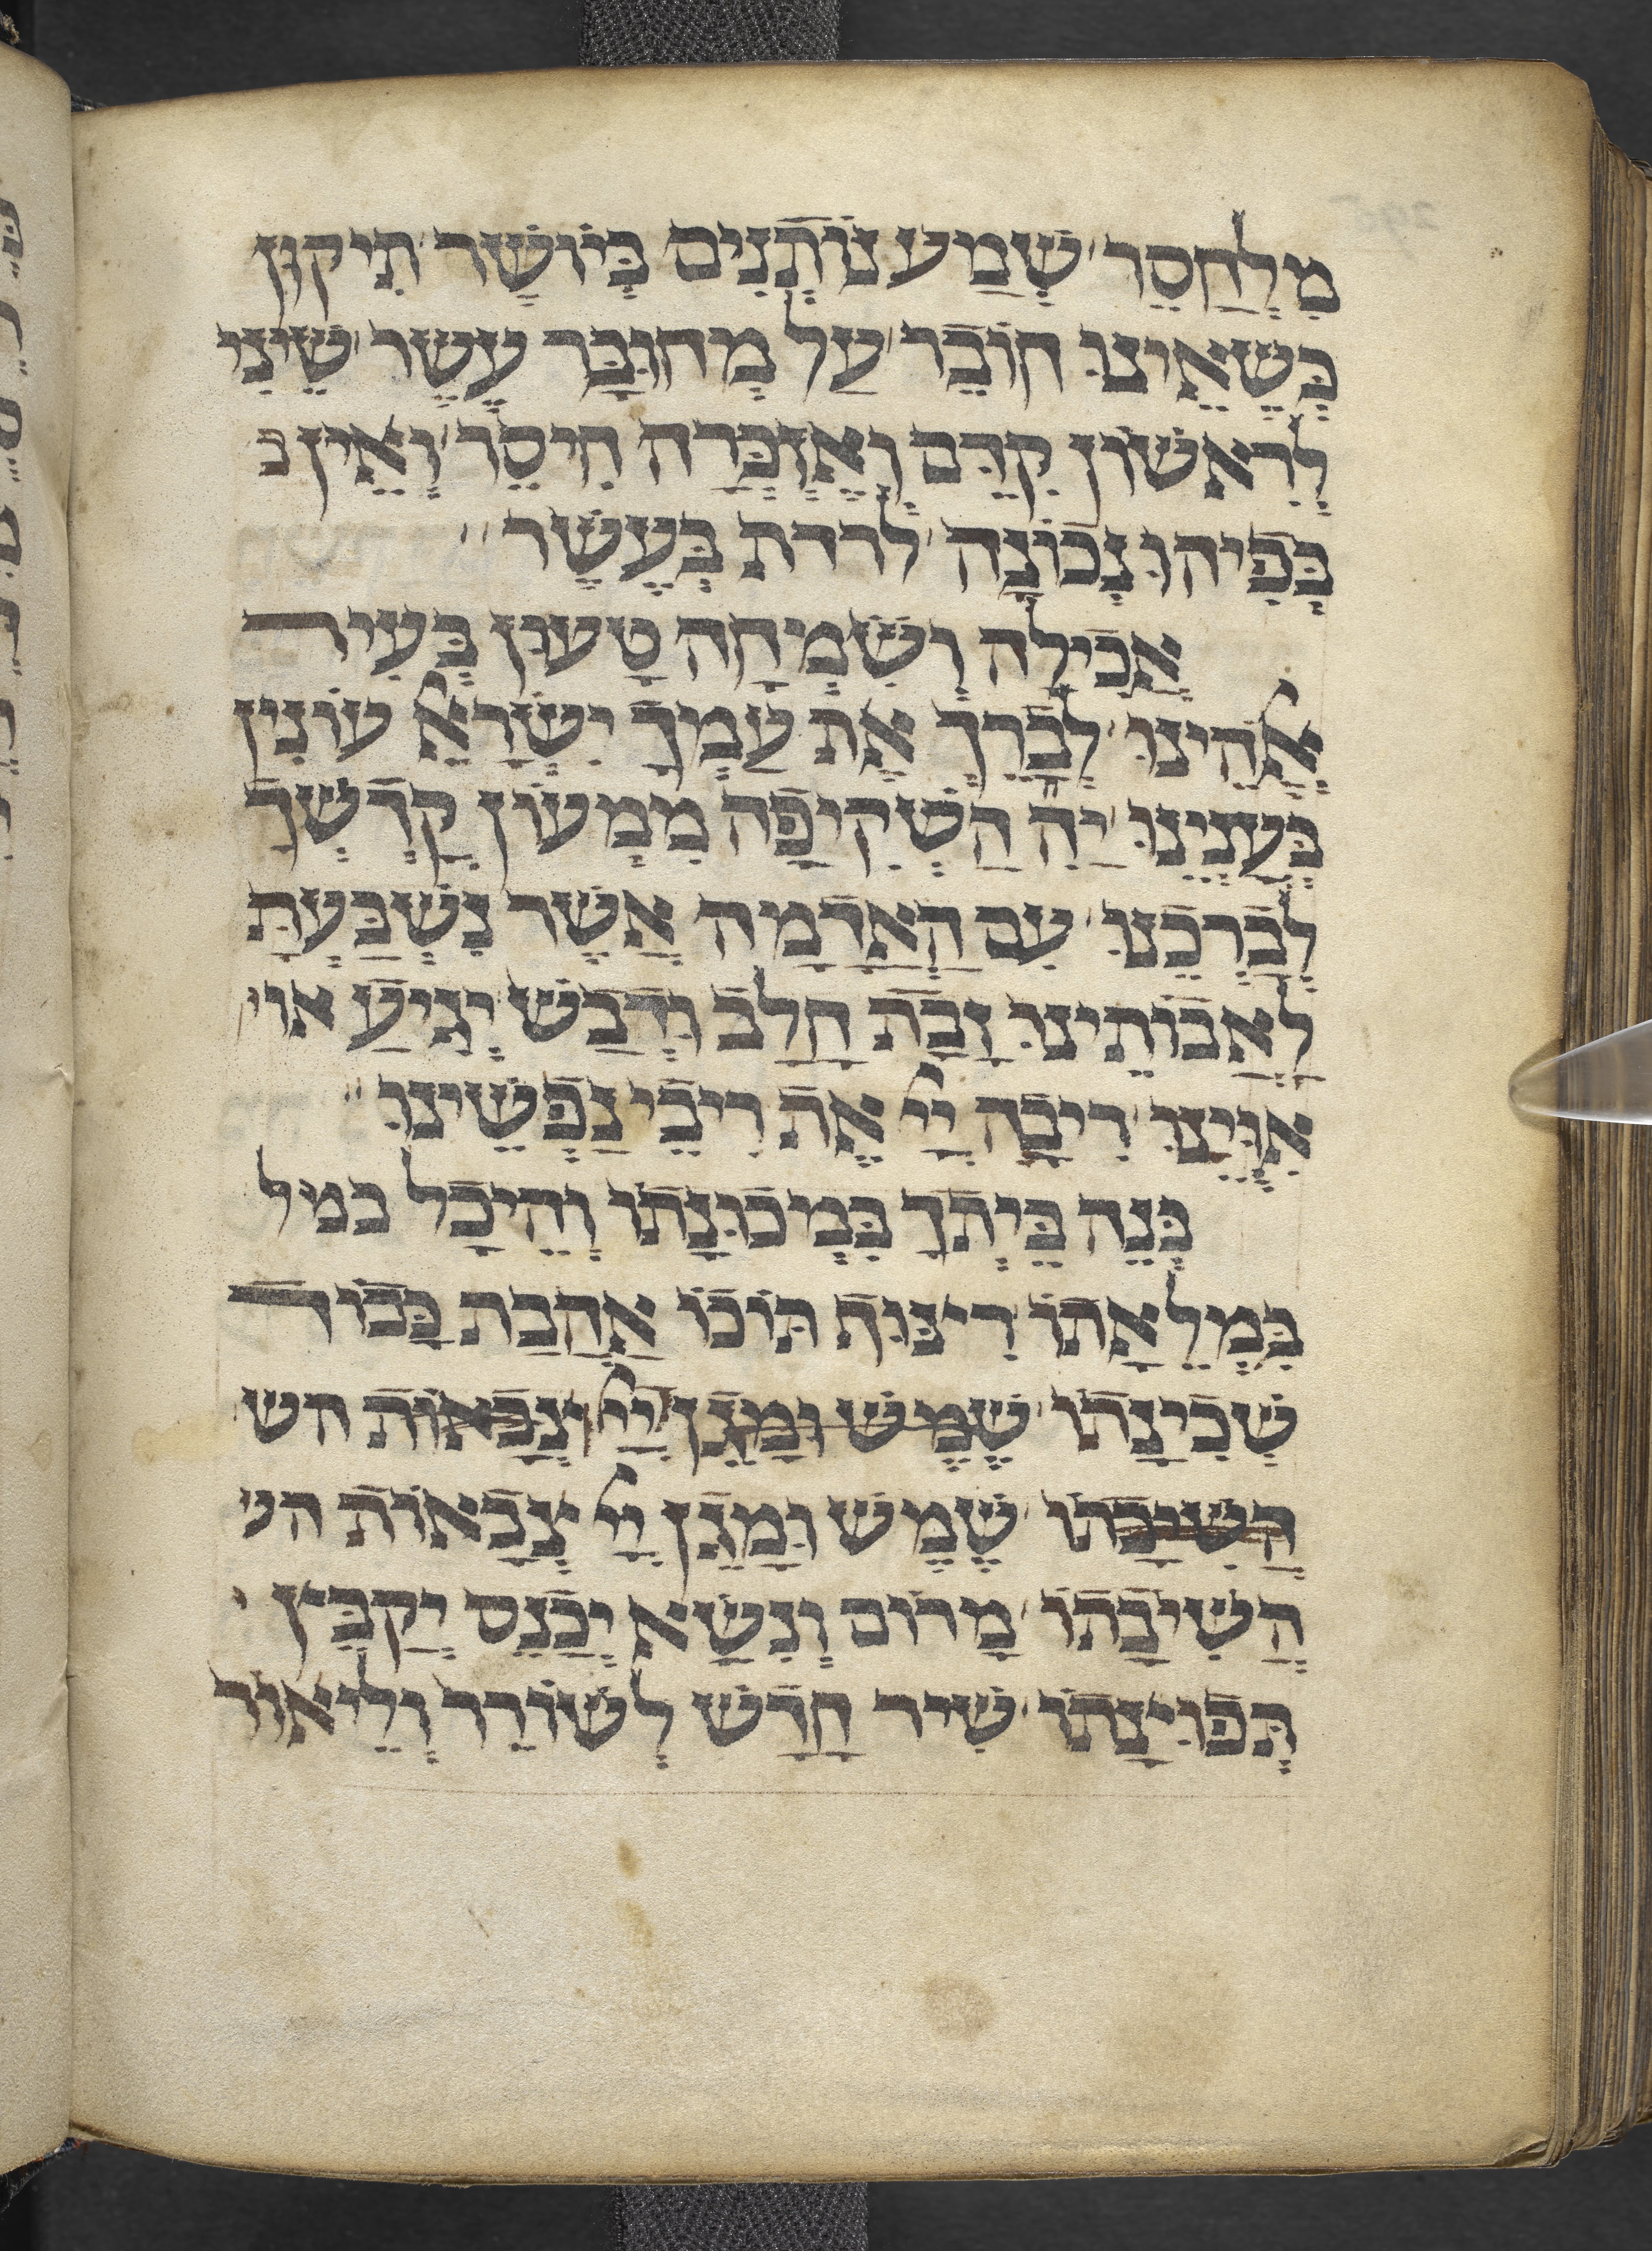 מלחסר שמע נותנים ביושר תיקון
כשאינו חובר על מחובר עשר שיני
לראשון קדם ואזכרה חיסר ואין כ
בפיהו נכונה לרדת בעשר
אכילה ושמחה טעון בעיר
אלהינו לברך את עמך ישראל עונין
יה השקיפה ממעון קדשך
לברכנו עם האדמה אשר נשבעת
לאבותינו זבת חלב ודבש יגיע אוי
אויינו ריבה יי את ריבי נפשינו
בנה ביתך כמכונתו והיכל כמיל
כמילאתו תוכו אהבת כבוד
שכינתו שמש ומגן יי צבאות הש
השיבתו שמש ומגן יי צבאות הש
השיבתו מרום ונשא יכנס יקבץ
תפוצתו שיר חדש לשורר וליאור